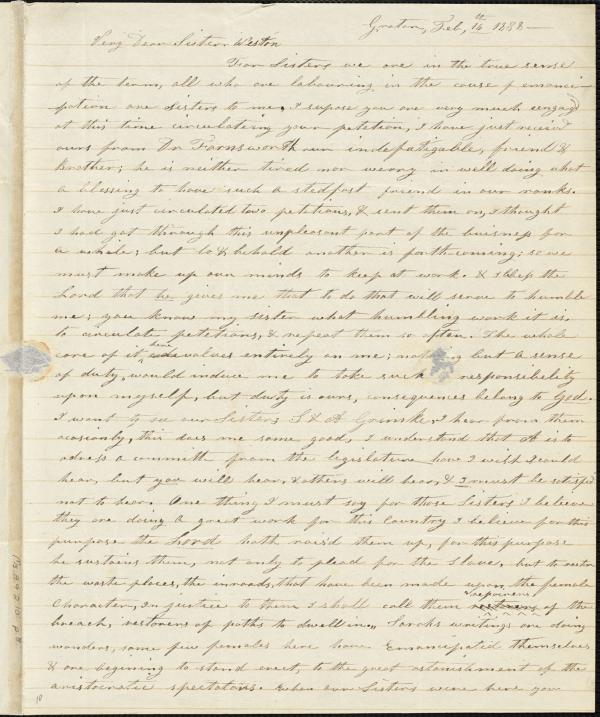 Groton, Feb, 16th 1838—
Very Dear Sister Weston
Dear Sisters we are in the true sense
of the term, all who are labouring in the cause of emanci-
pation are Sisters to me, I supose you are very much engag'd
at this time circulating your petition, I have just receiv'd
ours from Dr Farnsworth our indefatigable, friend &
brother; he is neither tired nor weary in well doing what
a blessing to have such a stedfast friend in our ranks.
I have just circulated two petitions, & sent them on, I thought
I had got through this unpleasant part of the buisness for
a while; but lo & behold another is forthcoming; so we
must make up our minds to keep at work. & I bless the
Lord that he gives me that to do that will serve to humble
me; you know my sister what humbling work it is,
to circulate petitions, & repeat them so often. The whole
care of it, here devalves entirely on me; nothing but a sense
of duty, would induce me to take such responsibelity
upon myself, but duty is ours, consequences belong to God.
I want to see our Sisters S & A Grimke, I hear from them
ocasionly, this does me some good, I understand that A is to
adress a committe from the legislature have I wish I could
hear, but you will hear, & others will hear, & I must be satisfied
not to hear. One thing I must say for those Sisters I believe
they are doing a great work for this Country I believe for this
purpose the Lord hath rais'd them up, for this purpose
he sustains them, not only to plead for the Slave, but to restore
the waste places, the inroads, that have been made upon the female
Character, In justice to them I shall call them repairers of the
breach, restorers of paths to dwell in,, Sarahs writings are doing
wonders, some few females here have Emancipated themselves
& are begining to stand erect, to the great astonishment of the
aristocratic spectators. When our Sisters were here you
10